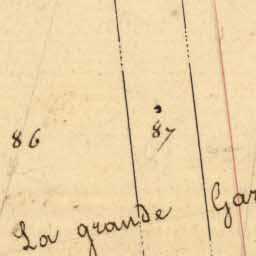 86
87
La grande Gar